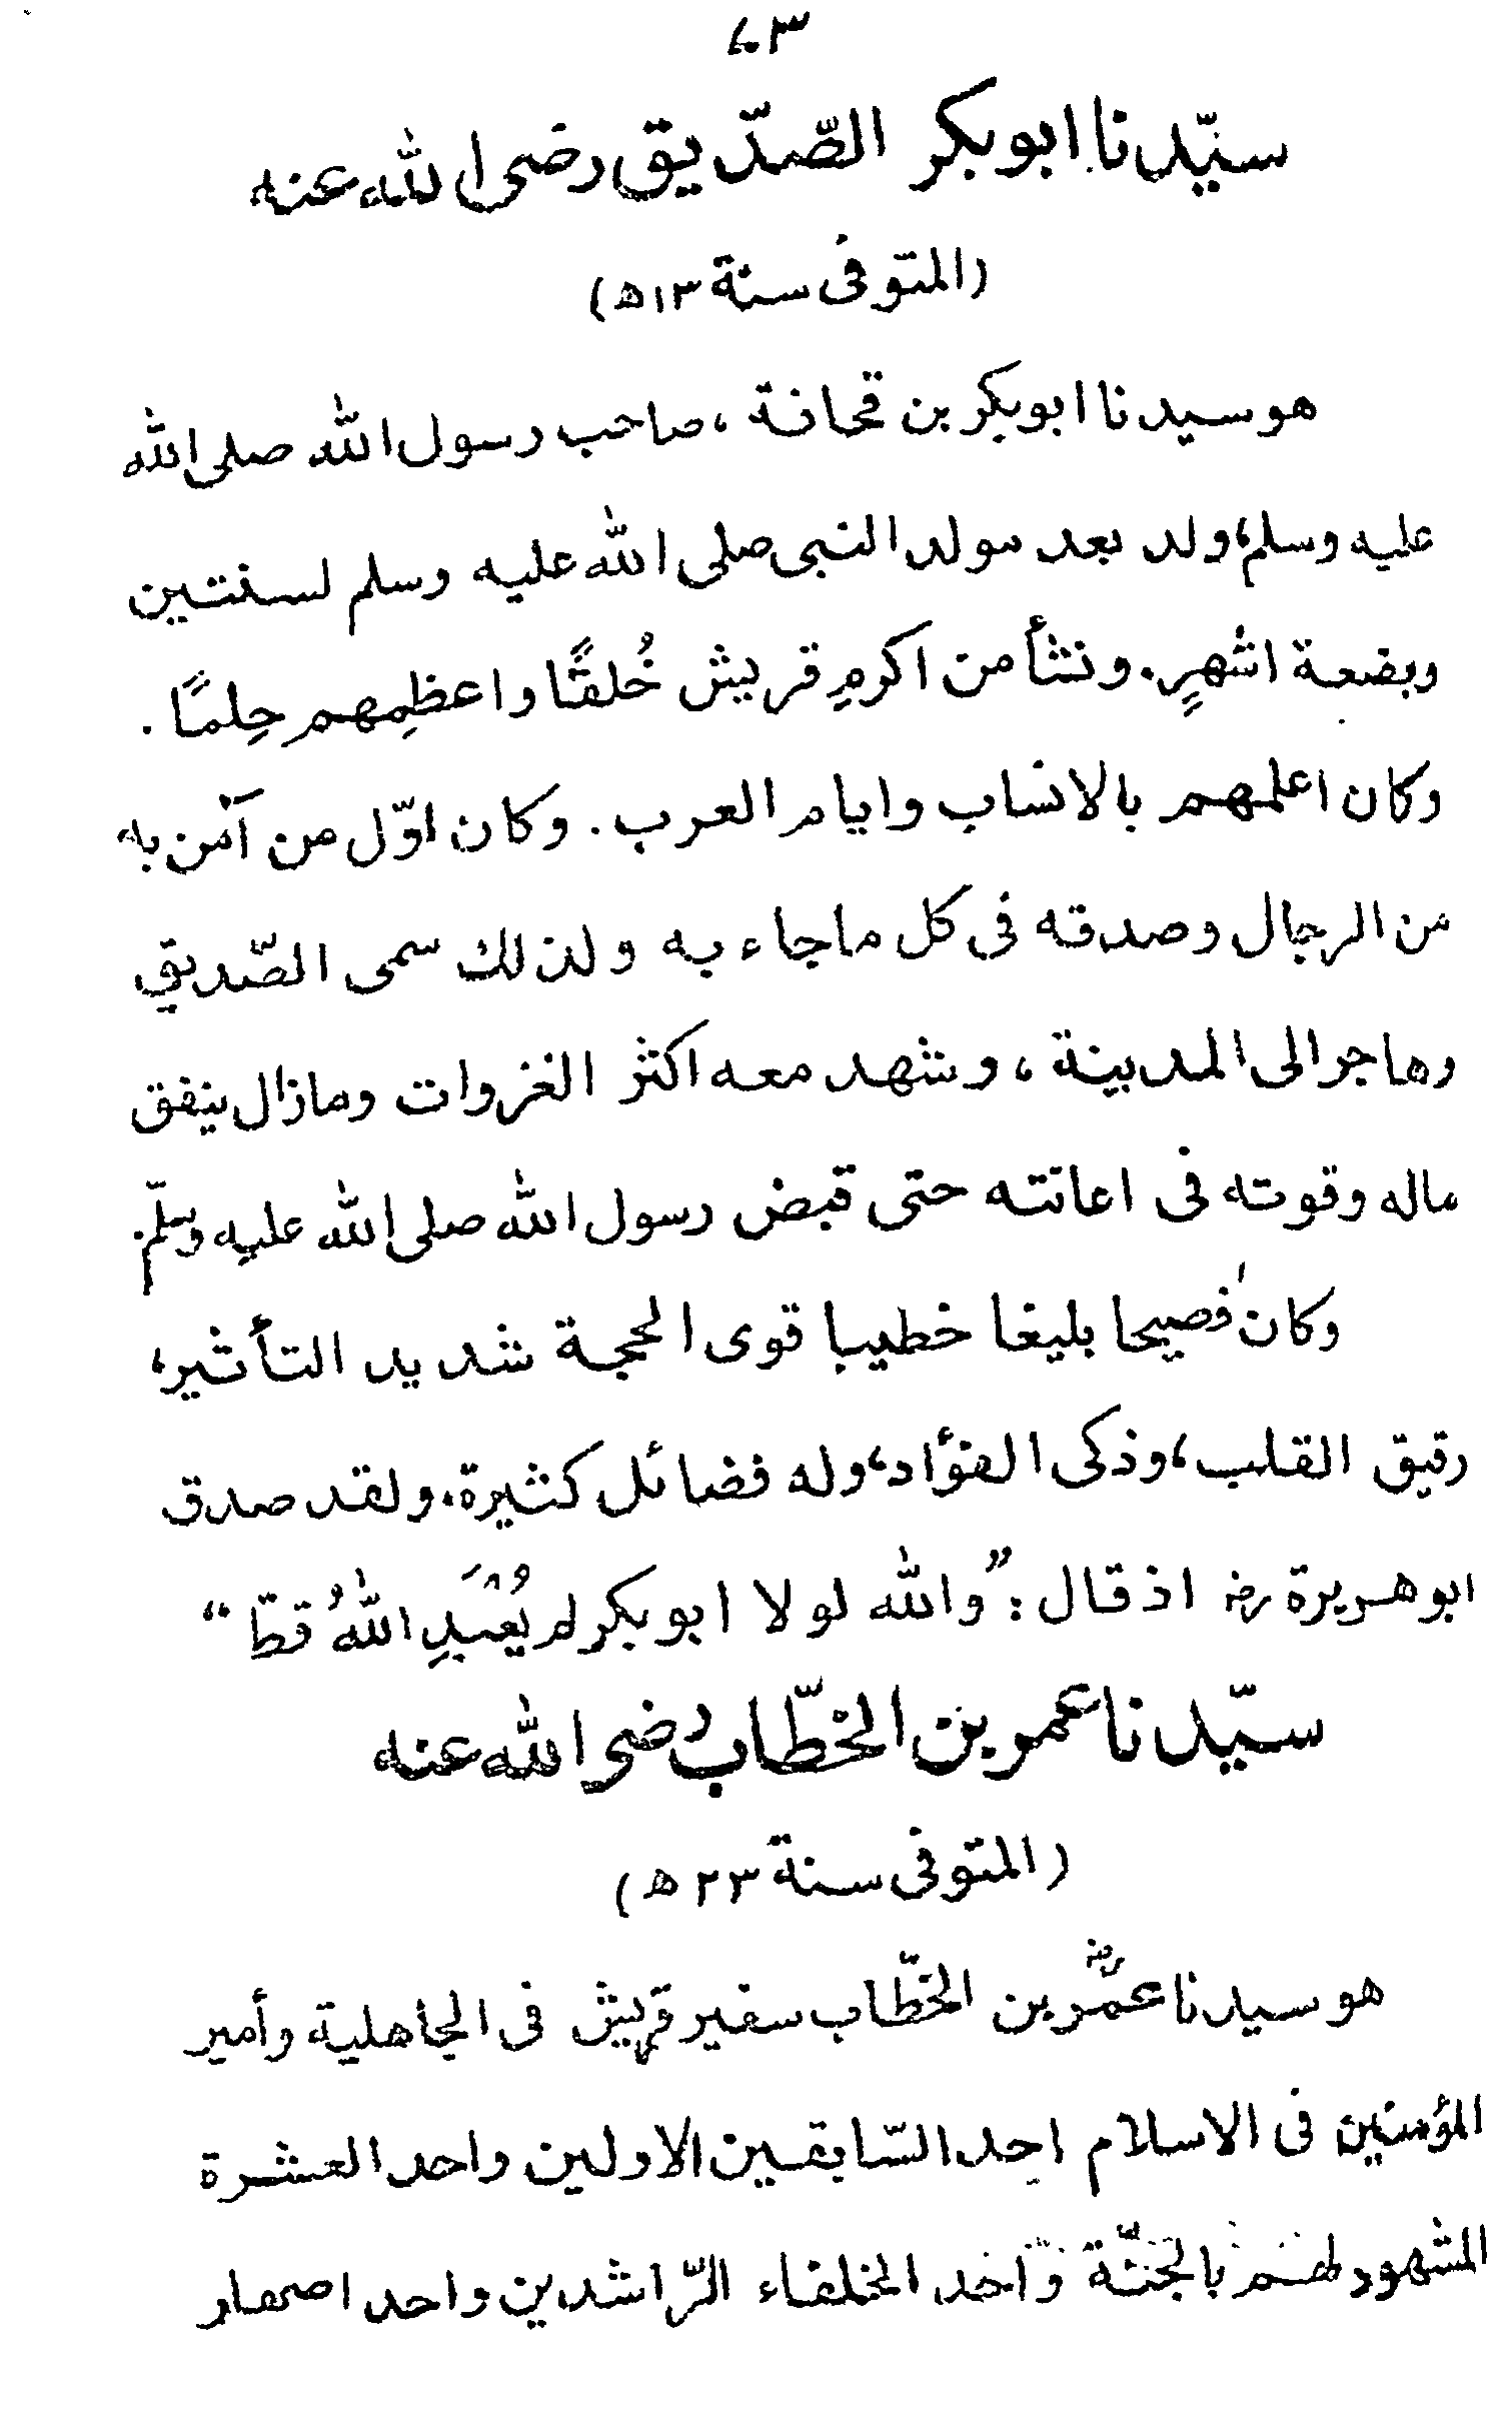 ۷۳
سيّدنا ابوبكر الصّدّيق رضى الله عنه
(المتوفى سنة ١٣ھ)
هو سيدنا ابوبكر بن قحافة، صاحب رسول الله صلى الله
عليه وسلم، ولد بعد مولد النبى صلى الله عليه وسلم لسنتين
وبضعة اشهرٍ. ونشأ من اكرمِ قريش خُلقًا واعظمِهم حِلمًا.
وكان اعلمهم بالانساب وايام العرب. وكان اوّل من آمن به
من الرجال وصدقه فى كل ماجاء به ولذلك سمى الصّديق
وهاجر الى المدينة، وشهد معه اكثر الغزوات ومازال ينفق
ماله وقوته فى اعانته حتى قبض رسول الله صلى الله عليه وسلّم.
وكان فصيحا بليغا خطيبا قوى الحجة شديد التأثير،
رقيق القلب، وذكى الفؤاد، وله فضائل كثيرة. ولقد صدق
ابوهريرة رضـ اذ قال: ”والله لولا ابوبكر لم يُعْبَدِ اللهُ قطّ“
سيّدنا عمر بن الخطّاب رضى الله عنه
(المتوفى سنة ٢٣ ھ)
هو سيدنا عمرؓ بن الخطّاب سفير قريش فى الجاهلية وأمير
المؤمنين فى الاسلام احد السّابقين الاولين واحد العشرة
المشهود لهم بالجنّة واحد الخلفاء الرّاشدين واحد اصهار